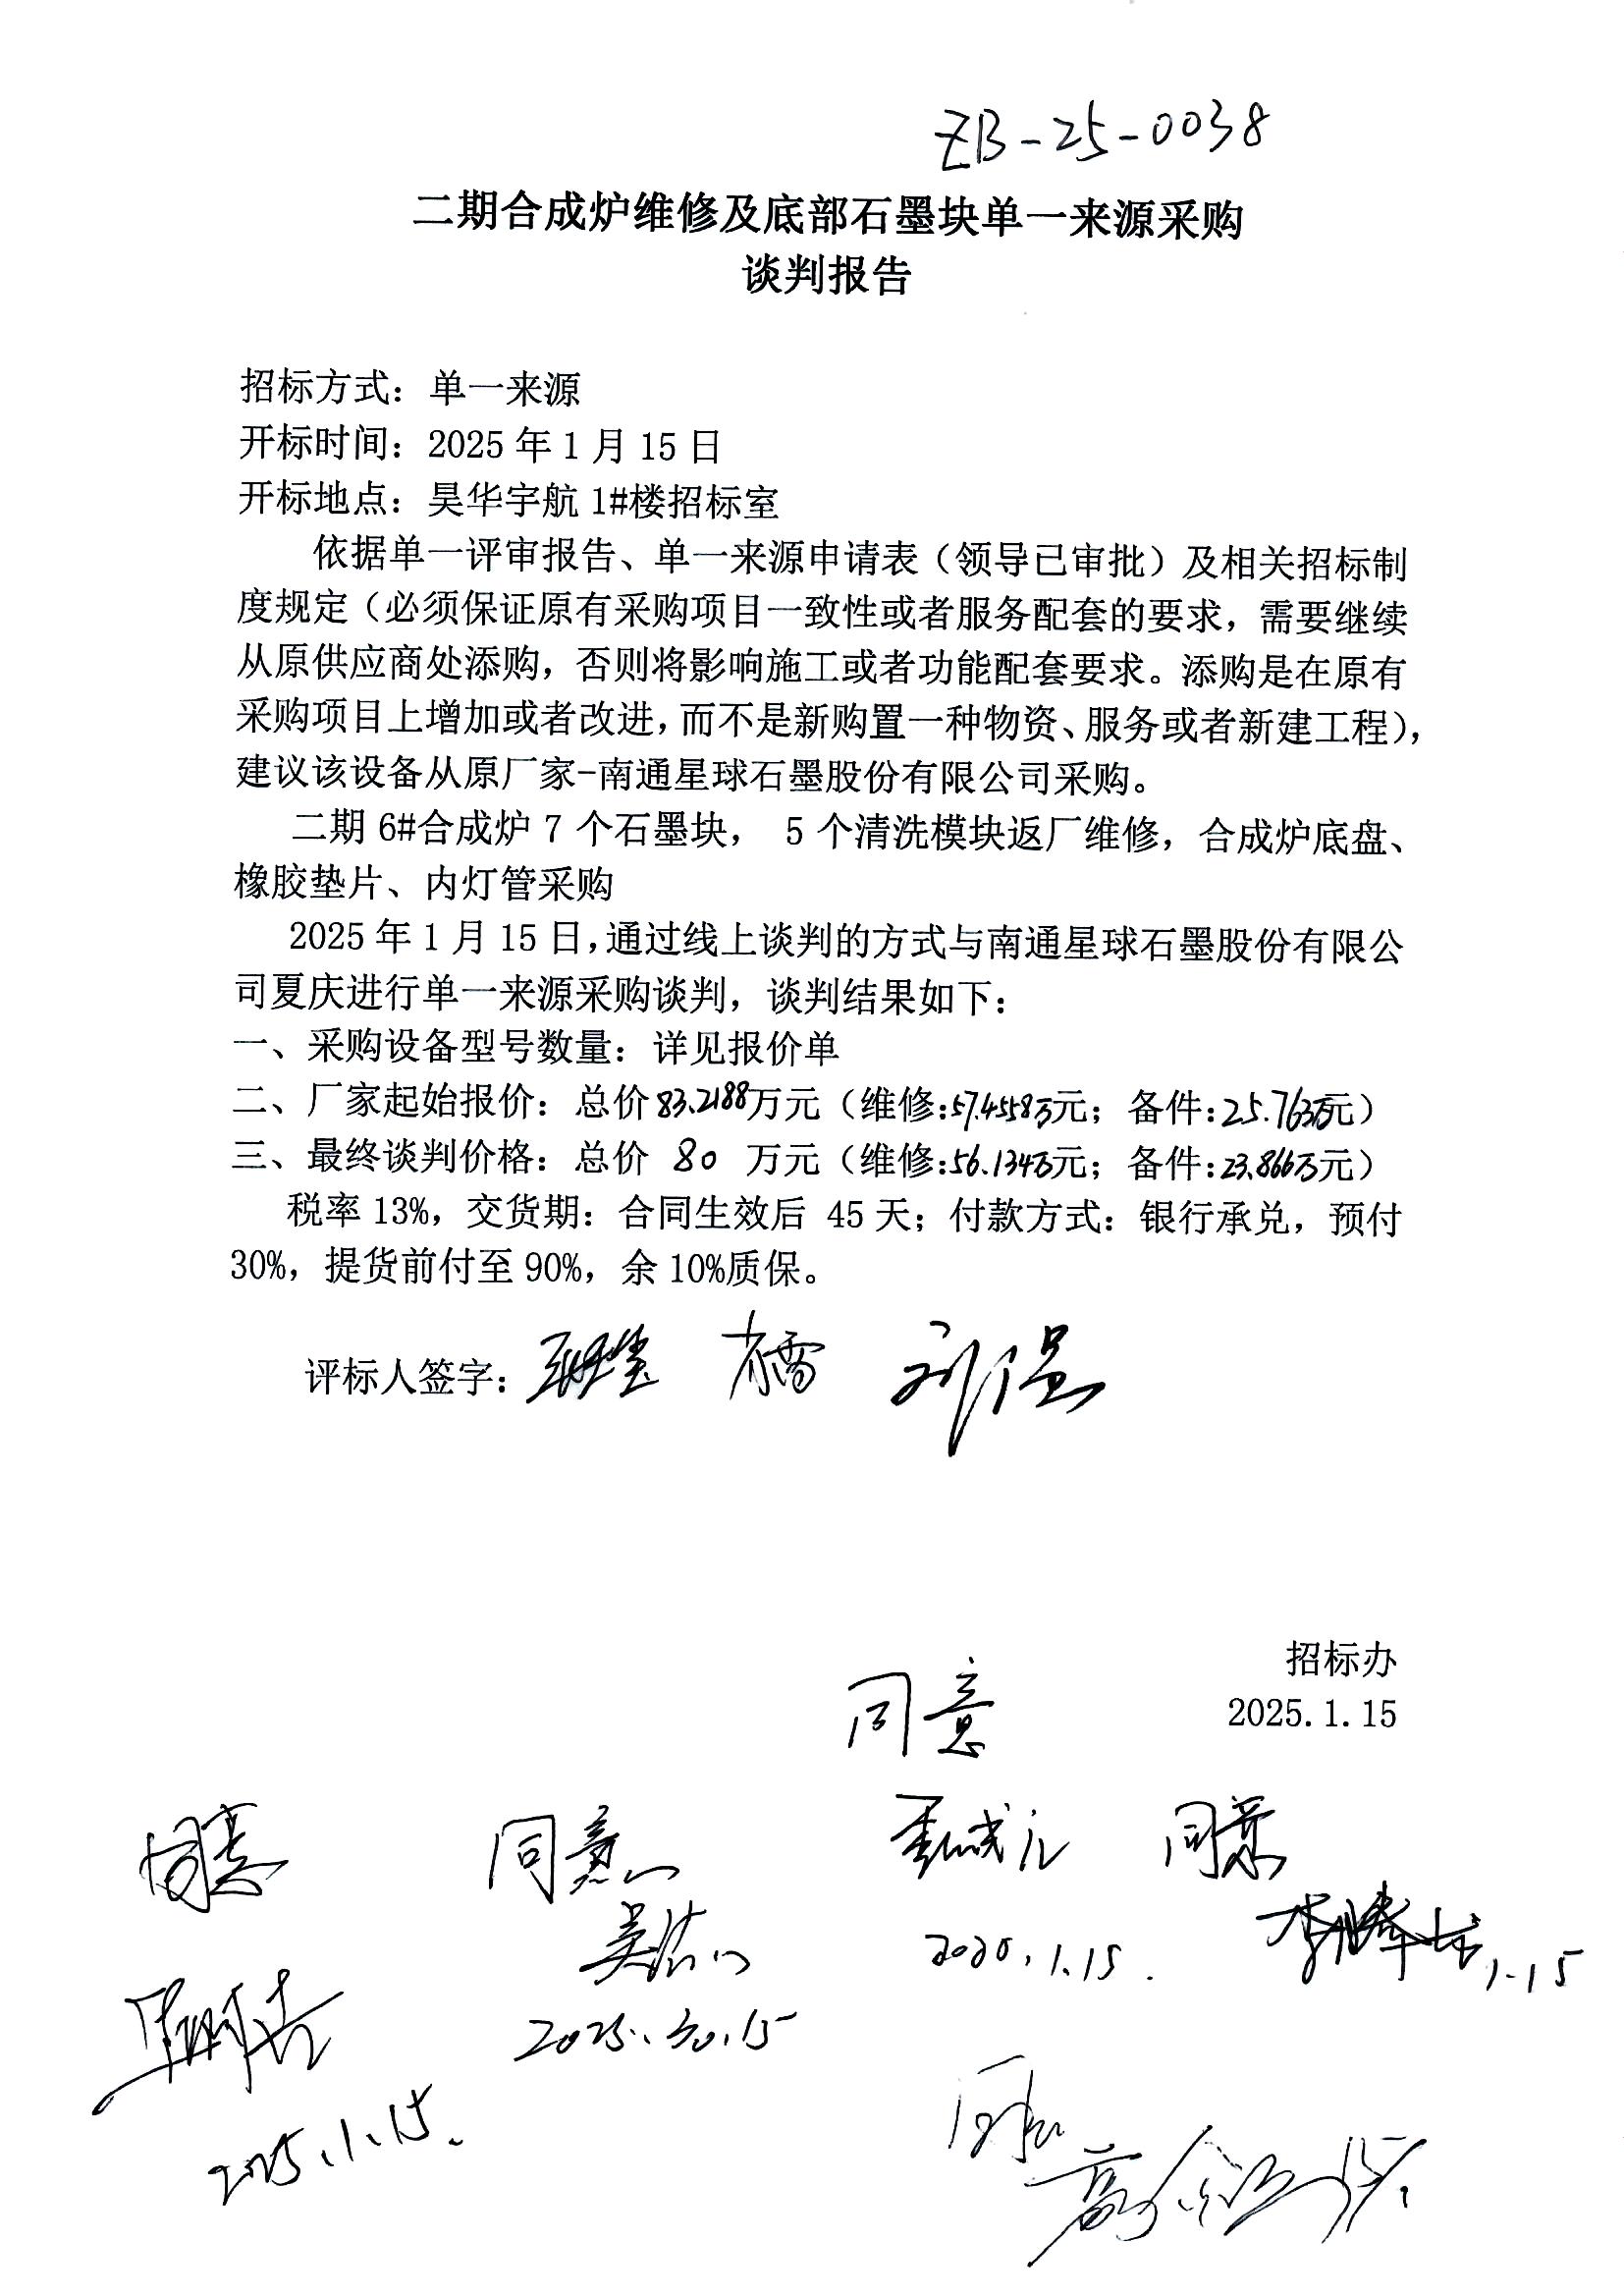 ZB-25-0038
二期合成炉维修及底部石墨块单一来源采购
谈判报告
招标方式：单一来源
开标时间：2025年1月15日
开标地点：昊华宇航1#楼招标室
依据单一评审报告、单一来源申请表（领导已审批）及相关招标制
度规定（必须保证原有采购项目一致性或者服务配套的要求，需要继续
从原供应商处添购，否则将影响施工或者功能配套要求。添购是在原有
采购项目上增加或者改进，而不是新购置一种物资、服务或者新建工程），
建议该设备从原厂家-南通星球石墨股份有限公司采购。
二期6#合成炉7个石墨块， 5个清洗模块返厂维修，合成炉底盘、
橡胶垫片、内灯管采购
2025年1月15日，通过线上谈判的方式与南通星球石墨股份有限公
司夏庆进行单一来源采购谈判，谈判结果如下：
一、采购设备型号数量：详见报价单
二、厂家起始报价：总价83.2188万元（维修：57.4558万元；备件：25.763万元）
三、最终谈判价格：总价 80 万元（维修：56.134万元；备件：23.866万元）
税率13%，交货期：合同生效后 45天；付款方式：银行承兑，预付
30%，提货前付至90%，余10%质保。
评标人签字：
招标办
2025.1.15
同意
同意 同意 同意
1.15
2025.1.15.
同意